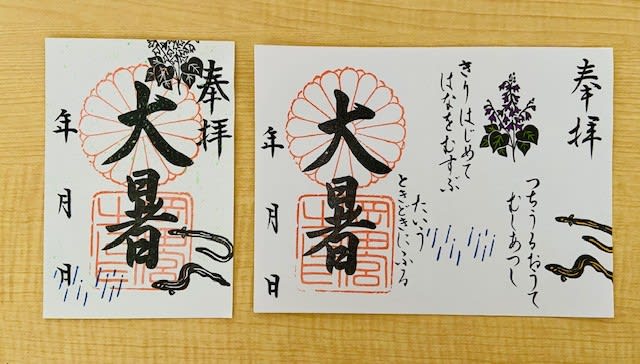 奉拝
大暑
年 月 日
奉拝
つちうるおうて
むしあつし
きりはじめて
はなをむすぶ
たいう
ときどきにふる
大暑
年 月 日